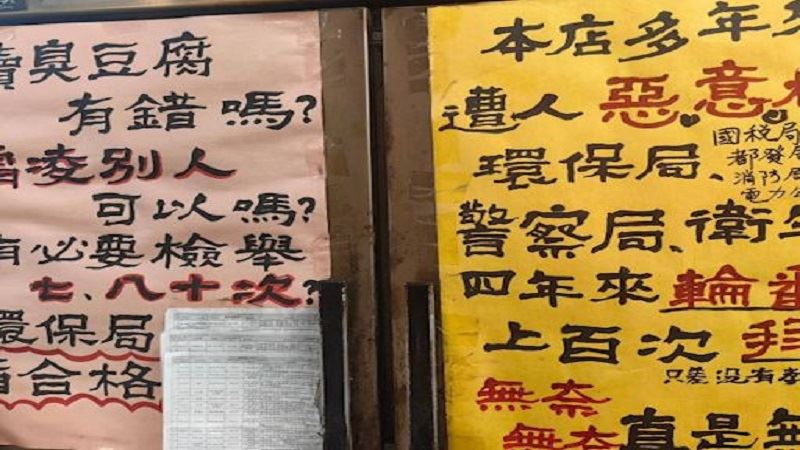 賣臭豆腐
有錯嗎?
凌別人
可以嗎?
有必要檢舉
七、八十次?
環保局
皆合格
本店多年
遭人惡意
環保局、
國稅局
都發局
消防局
電力公
警察局、衛生
四年來輪番
上百次拜
只差沒有
無奈
無奈真是無